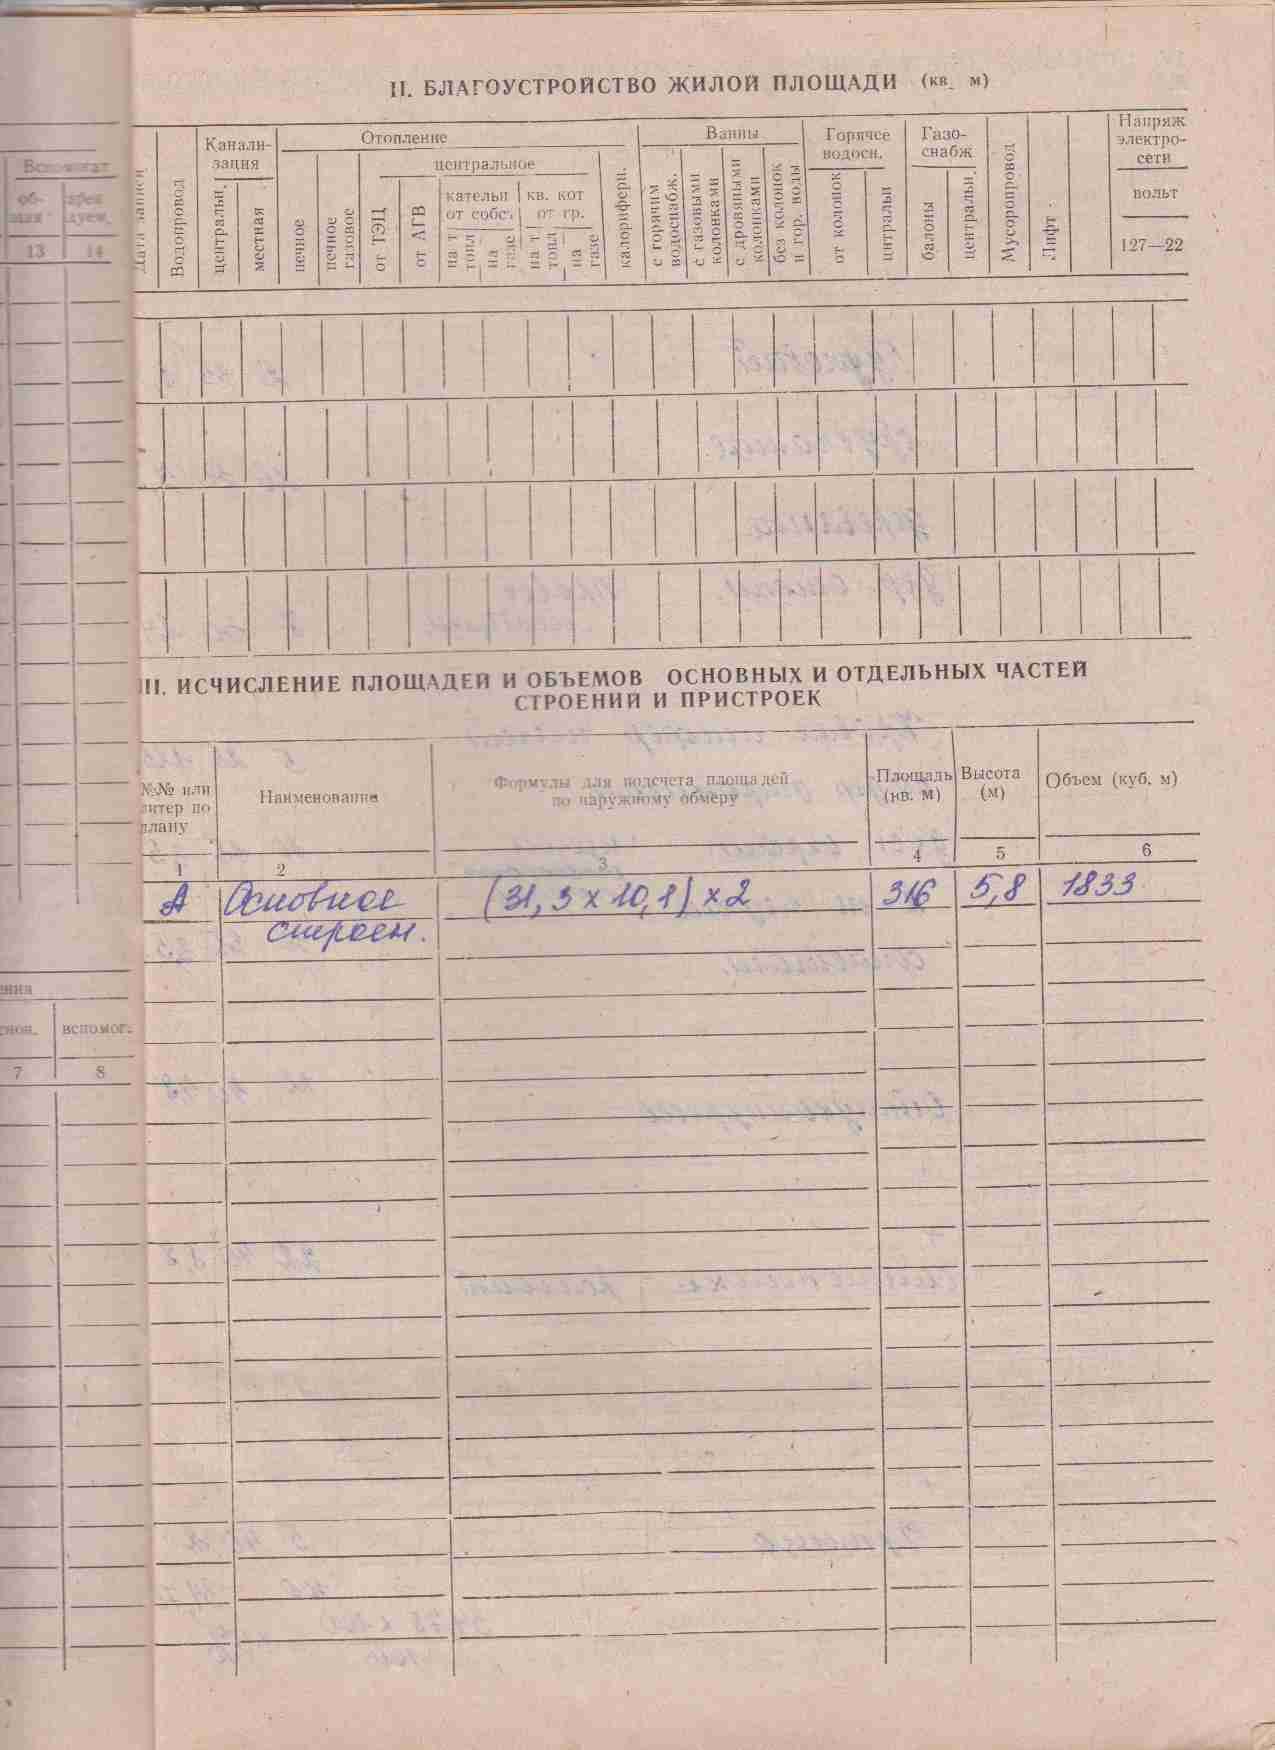 II. БЛАГОУСТРОЙСТВО ЖИЛОЙ ПЛОЩАДИ (кв. м)
Дата записи
Водопровод
Канали-
зация
центральн.
местная
Отопление
печное
печное
газовое
центральное
от ТЭЦ
от АГВ
кательн
от собс.
на т
топл
на
газе
кв. кот
от гр.
на т
топл
на
газе
калорифери.
Ванны
с горячим
водоснабж.
с газовыми
колонками
с дровяными
колонками
без колонок
и гор. воды
Горячее
водосн.
от колонок
центральн
Газо-
снабж
балоны
центральн.
Мусоропровод
Лифт
Напряж
электро-
сети
вольт
127—22
Вспомогат
об-
щая
арен
дуем.
13 14
III. ИСЧИСЛЕНИЕ ПЛОЩАДЕЙ И ОБЪЕМОВ ОСНОВНЫХ И ОТДЕЛЬНЫХ ЧАСТЕЙ
СТРОЕНИЙ И ПРИСТРОЕК
№№ или
литер по
плану
Наименование
Формулы для подсчета площадей
по наружному обмеру
Площадь
(кв. м)
Высота
(м)
Объем (куб. м)
1 2 3 4 5 6
А Основное (31,3 x 10,1) x 2 316 5,8 1833
строен.
ения
снов. вспомог.
7 8